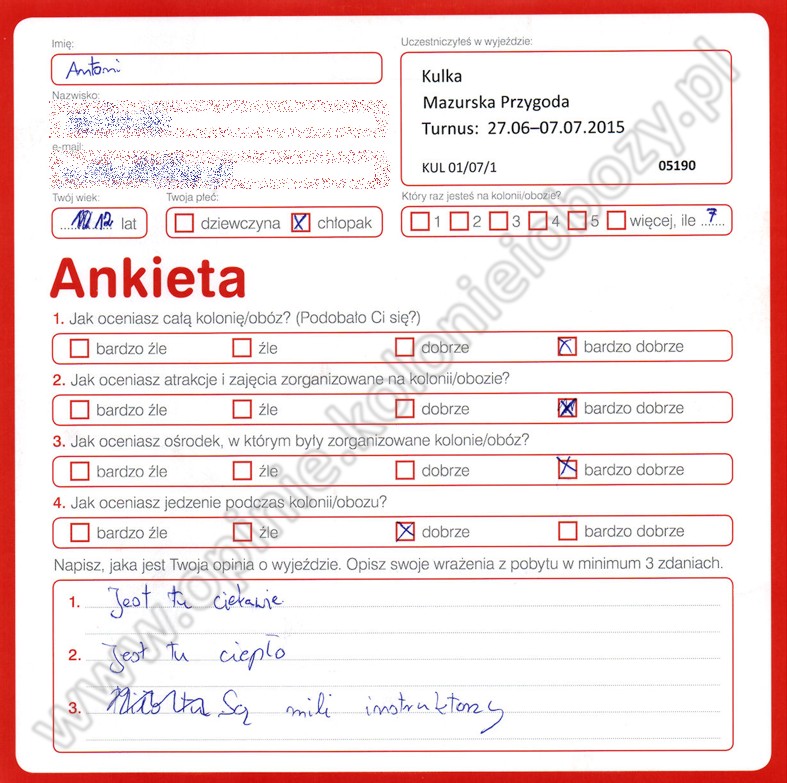 Imię:
Uczestniczyłeś w wyjeździe:
Antoni
Kulka
Mazurska Przygoda
Turnus: 27.06–07.07.2015
KUL 01/07/1 05190
Nazwisko:
e-mail:
Twój wiek: Twoja płeć: Który raz jesteś na kolonii/obozie?
12 lat dziewczyna X chłopak 1 2 3 4 5 więcej, ile 7
Ankieta
1. Jak oceniasz całą kolonię/obóz? (Podobało Ci się?)
bardzo źle źle dobrze X bardzo dobrze
2. Jak oceniasz atrakcje i zajęcia zorganizowane na kolonii/obozie?
bardzo źle źle dobrze X bardzo dobrze
3. Jak oceniasz ośrodek, w którym były zorganizowane kolonie/obóz?
bardzo źle źle dobrze X bardzo dobrze
4. Jak oceniasz jedzenie podczas kolonii/obozu?
bardzo źle źle X dobrze bardzo dobrze
Napisz, jaka jest Twoja opinia o wyjeździe. Opisz swoje wrażenia z pobytu w minimum 3 zdaniach.
1. Jest tu ciekawie
2. Jest tu ciepło
3. Są mili instruktorzy
www.opinie.kolonieiobozy.pl